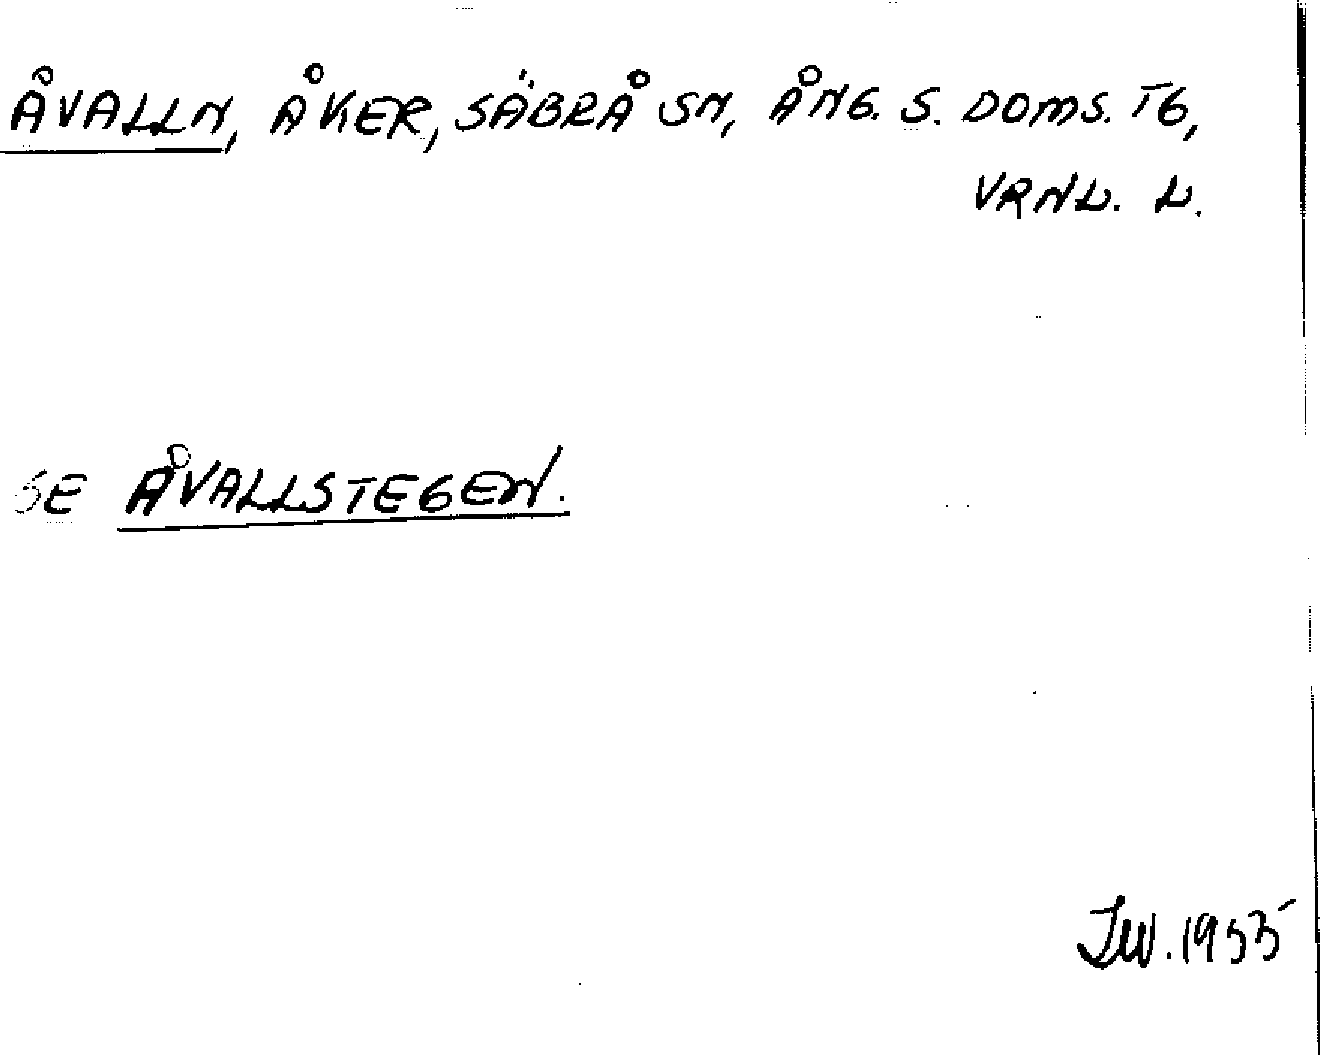 ÅVALLN, ÅKER, SÄBRÅ SN, ÅNG. S. DOMS. TG,
VRNL. L.
SE ÅVALLSTEGEN.
1935